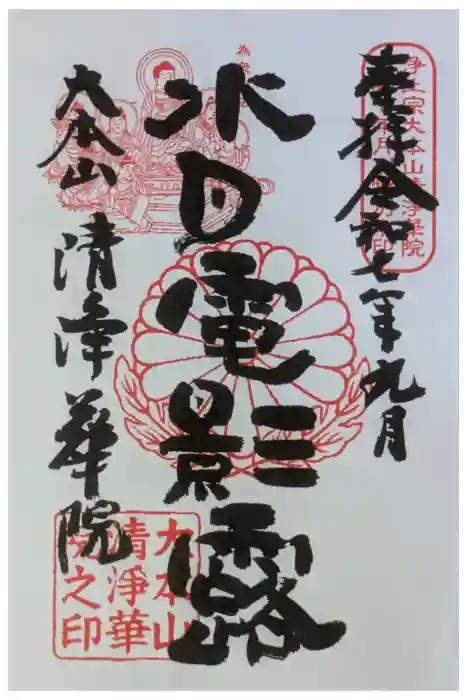 奉拝 令和七年九月
浄土宗大本山清浄華院
水月電影露
大本山 清浄華院
大本山
清淨華
院之印